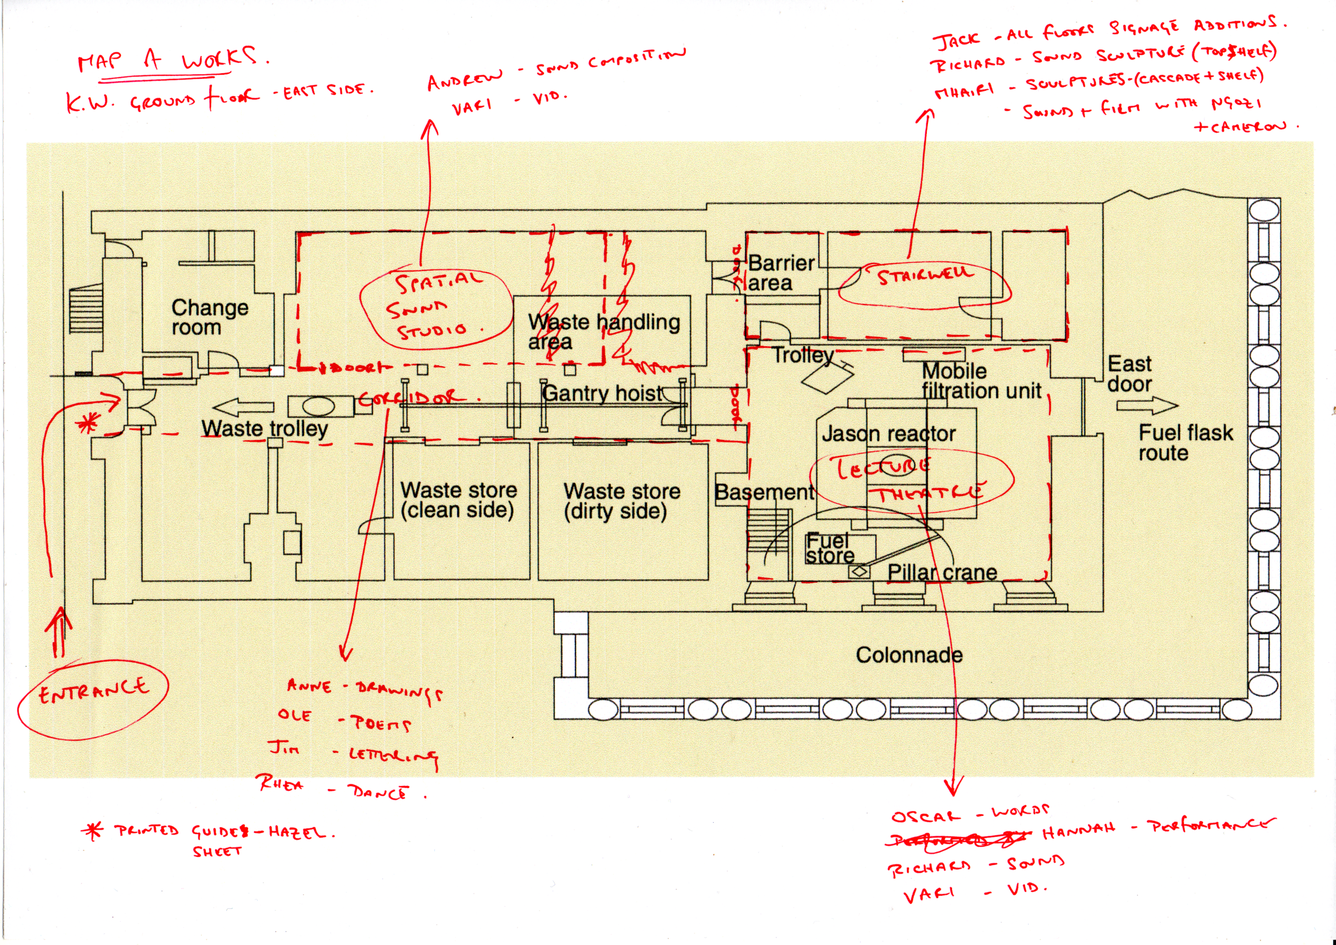 MAP A WORKS.
K.W. GROUND FLOOR - EAST SIDE.
ANDREW - SOUND COMPOSITION
VARI - VID.
JACK - ALL FLOORS SIGNAGE ADDITIONS.
RICHARD - SOUND SCULPTURE (TOP SHELF)
MHAIRI - SCULPTURES - (CASCADE + SHELF)
- SOUND + FILM WITH NGOZI
+ CAMERON.
Change
room
SPATIAL
SOUND
STUDIO.
Waste handling
area
DOOR
Barrier
area
STAIRWELL
DOOR
CORRIDOR.
Gantry hoist
Waste trolley
DOOR
Trolley
Mobile
filtration unit
East
door
Fuel flask
route
Jason reactor
LECTURE
THEATRE
Waste store
(clean side)
Waste store
(dirty side)
Basement
Fuel
store
Pillar crane
Colonnade
ENTRANCE
ANNE - DRAWINGS
OLE - POEMS
JIM - LETTERING
RHEA - DANCE.
* PRINTED GUIDES - HAZEL.
SHEET
OSCAR - WORDS
HANNAH - PERFORMANCE
RICHARD - SOUND
VARI - VID.